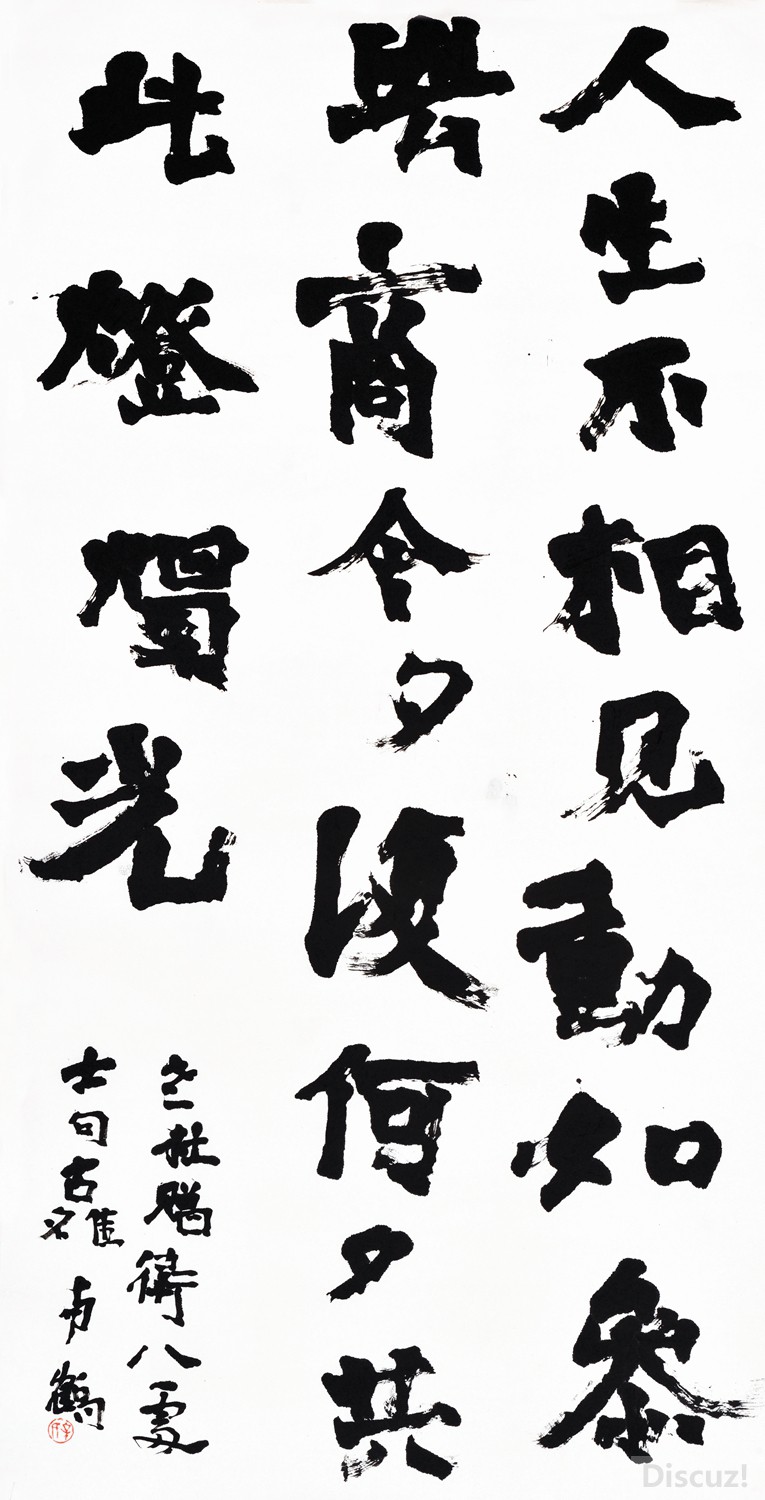 人生不相见動如參
與商今夕復何夕共
此燈燭光
老杜贈衛八處
士句古雒鶴
Discuz!